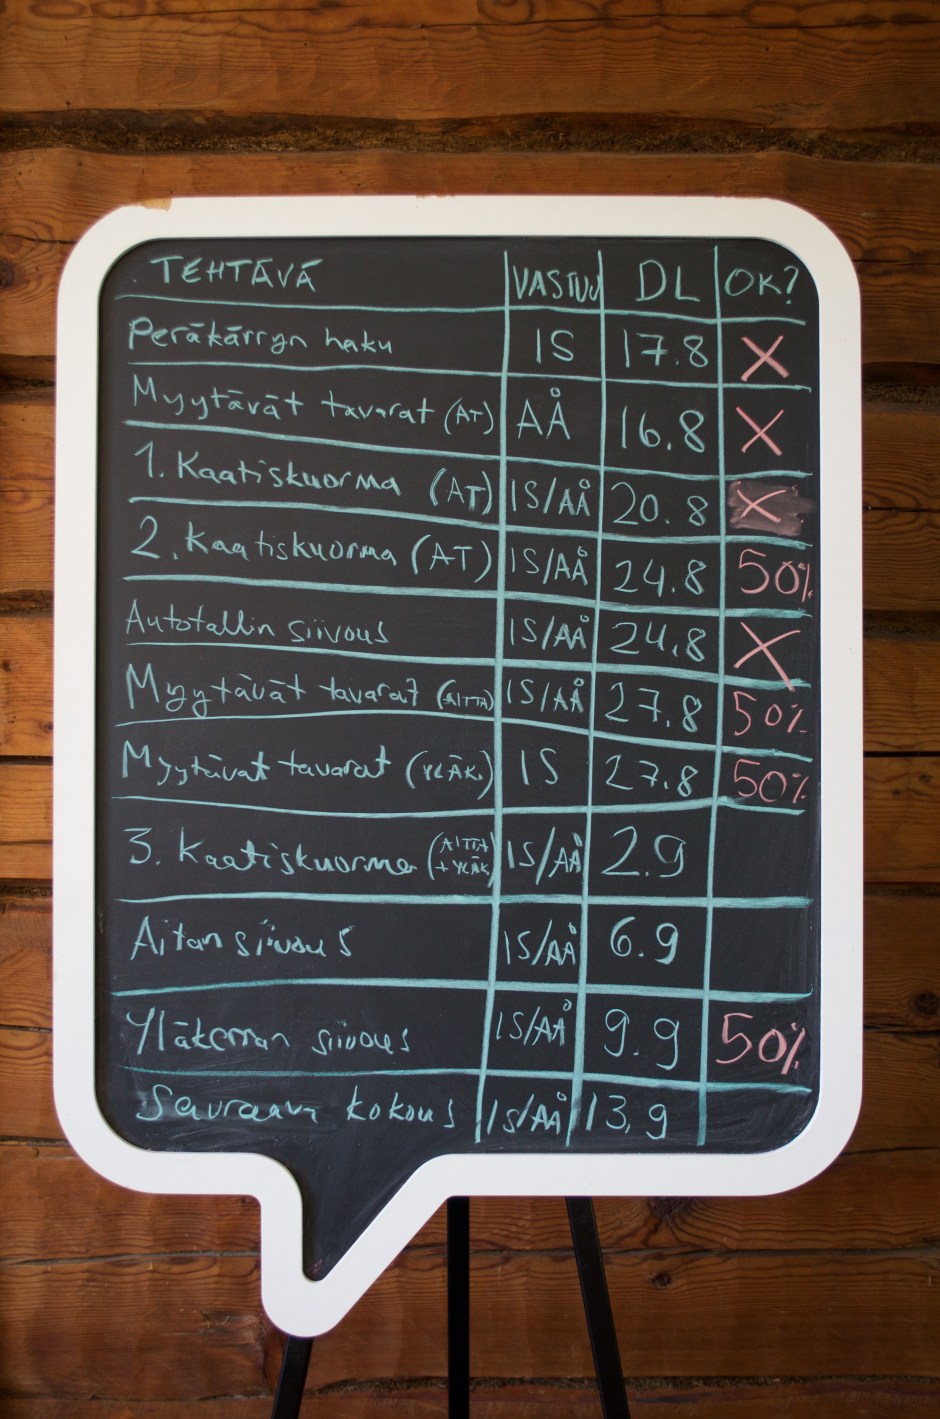 TEHTÄVÄ VASTUU DL OK?
Peräkärryn haku IS 17.8 X
Myytävät tavarat (AT) AÅ 16.8 X
1. Kaatiskuorma (AT) IS/AÅ 20.8 X
2. Kaatiskuorma (AT) IS/AÅ 24.8 50%
Autotallin siivous IS/AÅ 24.8 X
Myytävät tavarat (AITTA) IS/AÅ 27.8 50%
Myytävät tavarat (YLÄK.) IS 27.8 50%
3. Kaatiskuorma (AITTA + YLÄK) IS/AÅ 2.9
Aitan siivous IS/AÅ 6.9
Yläkerran siivous IS/AÅ 9.9 50%
Seuraava kokous IS/AÅ 13.9